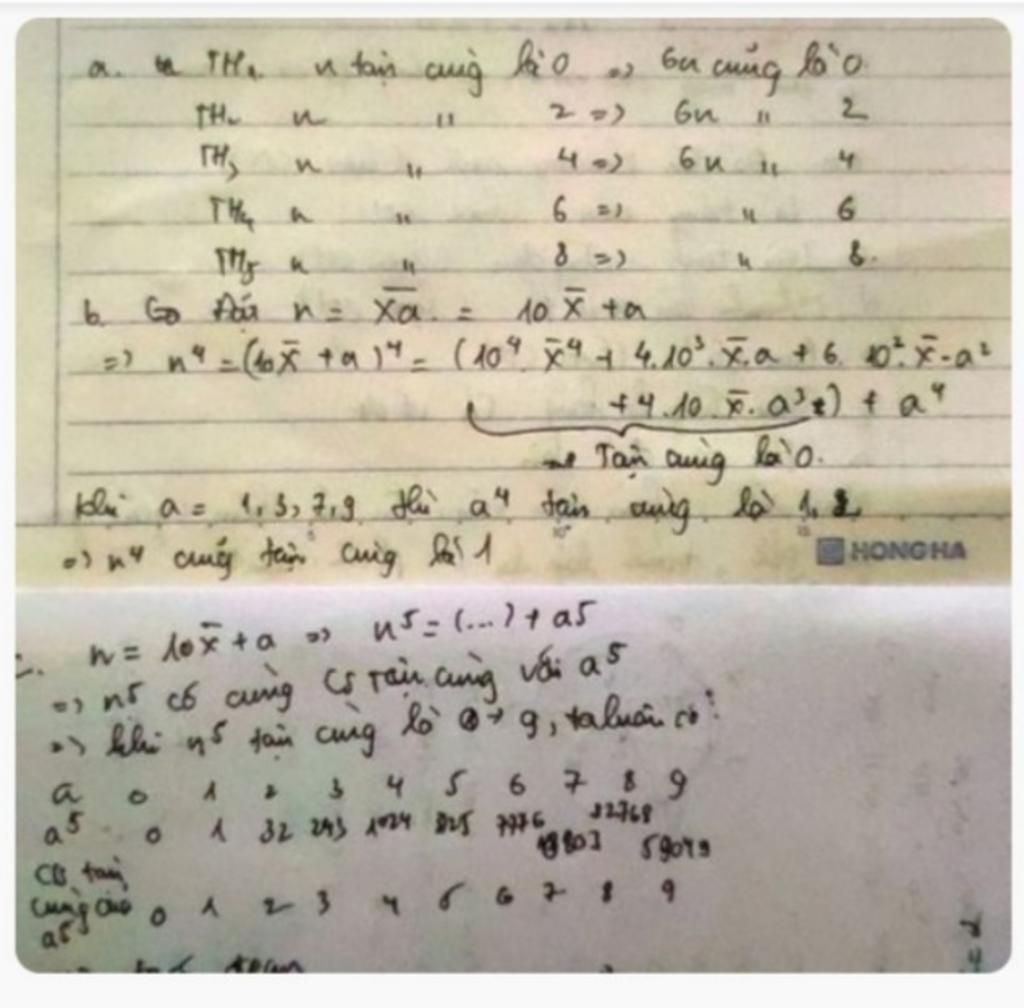 a. TH₁ n tận cùng là 0 => 6n cũng là 0
TH₂ n " 2 => 6n " 2
TH₃ n " 4 => 6n " 4
TH₄ n " 6 => " 6
TH₅ n " 8 => " 8.
b. Đặt n = x̅a̅ = 10x̅ + a
=> n⁴ = (10x̅ + a)⁴ = (10⁴. x̅⁴ + 4.10³. x̅.a + 6. 10². x̅.a²
+ 4.10. x̅. a³) + a⁴
Tận cùng là 0.
Khi a = 1, 3, 7, 9 thì a⁴ tận cùng là 1
=> n⁴ cũng tận cùng là 1
HONG HA
n = 10x̅ + a => n⁵ = (...) + a⁵
=> n⁵ có cùng CS tận cùng với a⁵
=> khi n⁵ tận cùng là 0 → 9, ta luôn có:
a 0 1 2 3 4 5 6 7 8 9
a⁵ 0 1 32 243 1024 7776 32768
59049
CS tận
cùng của 0 1 2 3 4 5 6 7 8 9
a⁵